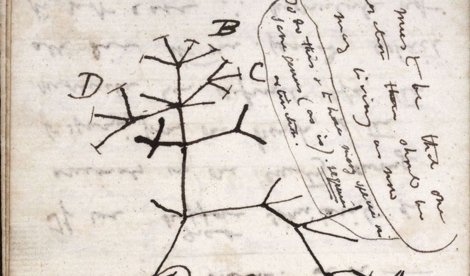 must be that one
then should be
many living as now
To do this & to have many species in
same genus (as is). requires
extinction.
B
C
D